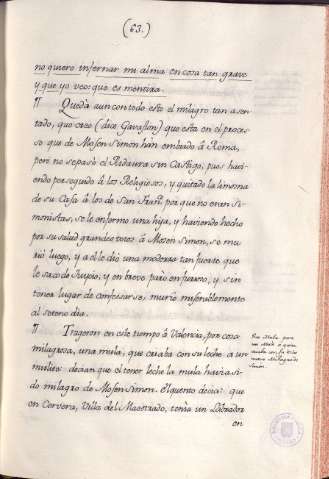 (63.)
no quiero infernar mi alma en cosa tan grave
y que yo veo que es mentira.
¶ Queda aun con todo esto el milagro tan asen-
tado, que creo (dice Gavaston) que esta en el proces-
so que de Mosen Simon han embiado â Roma,
pero no se pasò el Ridaura sin Castigo, pues havi-
endo perseguido â los Religiosos, y quitado la limosna
de su Casa â los de San Fran.co por que no eran Si-
monistas, se le enfermo una hija, y haviendo hecho
por su salud grandes votos â Mosen Simon, se mu-
riò luego, y a el le diò una modorra tan fuerte que
le sacò de Juycio, y en breve parò en furioso, y sin
tener lugar de confessarse, muriò miserablemente
al seteno dia.
¶ Trageron en este tiempo â Valencia, por cosa
milagrosa, una mula, que criaba con su leche a un
muleto: decian que el tener leche la mula havia si-
do milagro de Mosen Simon. El quento decia: que
en Cervera, Villa del Maestrado, tenia un Labrador
en